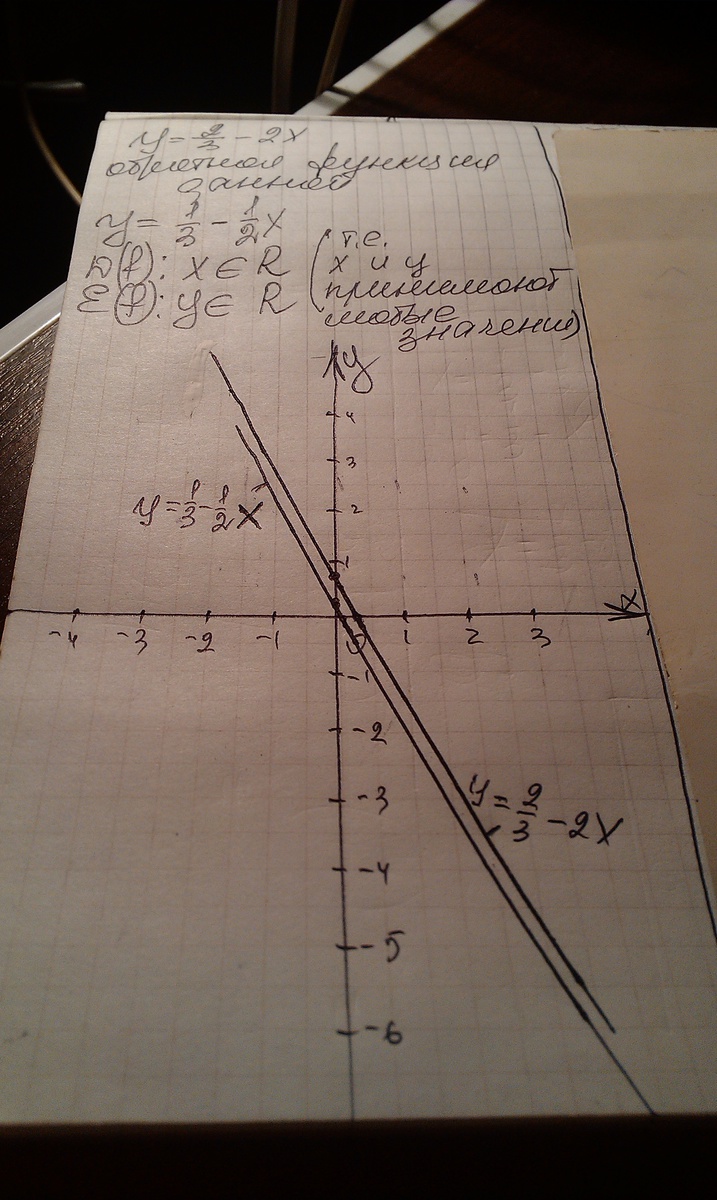 y = 2/3 - 2x
обратная функция
данной
y = 1/3 - 1/2 x
D(f): x ∈ R
E(f): y ∈ R
(т.е.
x и y
принимают
любые
значения)
y
4
3
2
1
y = 1/3 - 1/2 x
x
-4 -3 -2 -1 0 1 2 3
-1
-2
-3
y = 2/3 - 2x
-4
-5
-6